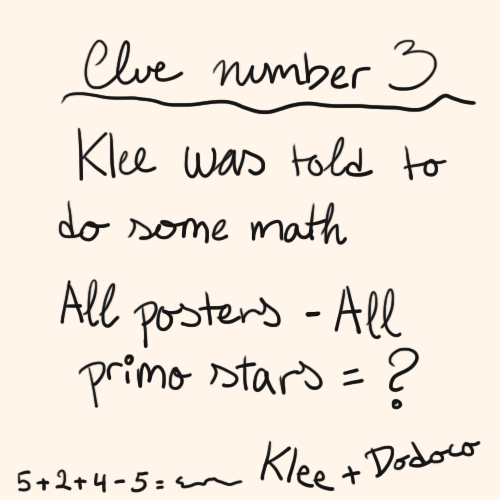 Clue number 3
Klee was told to
do some math
All posters - All
primo stars = ?
5+2+4-5=
Klee + Dodoco